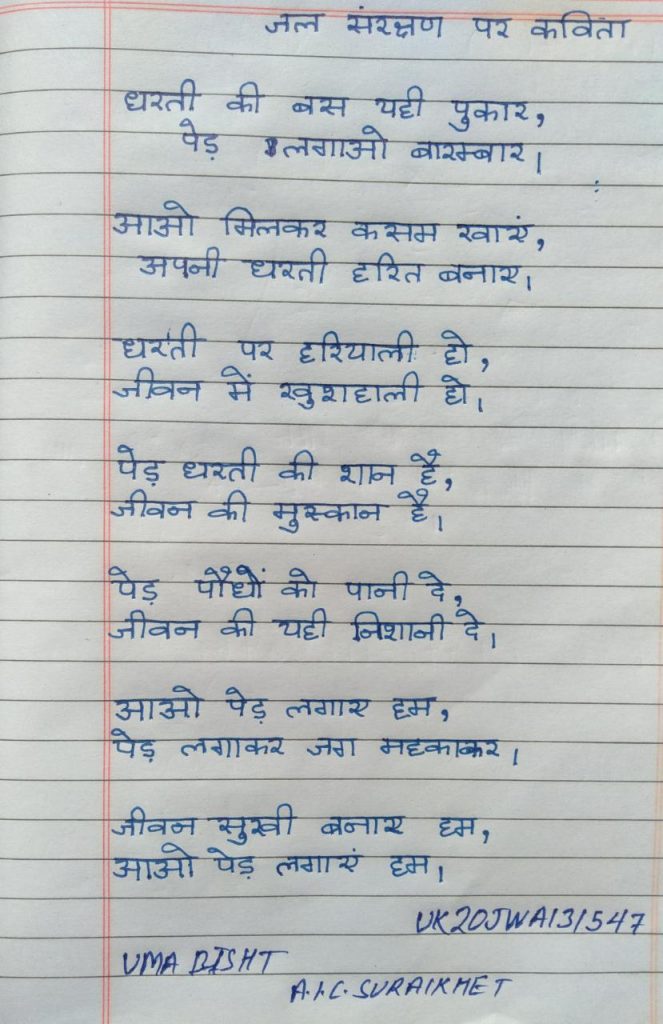 जल संरक्षण पर कविता
धरती की बस यही पुकार,
पेड़ लगाओ बारम्बार।
आओ मिलकर कसम खाएं,
अपनी धरती हरित बनाए।
धरती पर हरियाली हो,
जीवन में खुशहाली हो।
पेड़ धरती की शान है,
जीवन की मुस्कान है।
पेड़ पौधों को पानी दे,
जीवन की यही निशानी दे।
आओ पेड़ लगाए हम,
पेड़ लगाकर जग महकाकर।
जीवन सुखी बनाए हम,
आओ पेड़ लगाएं हम।
UK20JWA131547
UMA BISHT
A.I.C. SURAIKHET